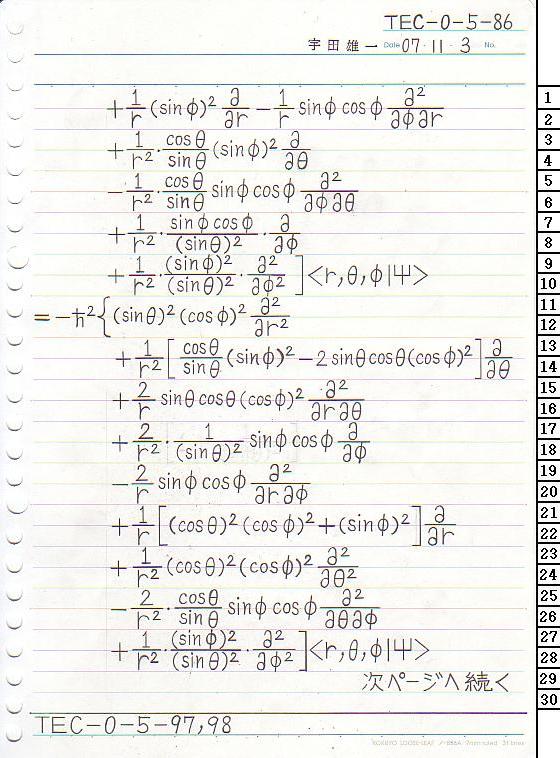 TEC-0-5-86
宇田雄一 Date 07・11・3 No.
+ 1/r (sinφ)² ∂/∂r − 1/r sinφ cosφ ∂²/∂φ∂r
+ 1/r² · cosθ/sinθ (sinφ)² ∂/∂θ
− 1/r² · cosθ/sinθ sinφ cosφ ∂²/∂φ∂θ
+ 1/r² · sinφ cosφ/(sinθ)² · ∂/∂φ
+ 1/r² · (sinφ)²/(sinθ)² · ∂²/∂φ² ] <r, θ, φ|Ψ>
= −ħ² { (sinθ)² (cosφ)² ∂²/∂r²
+ 1/r² [ cosθ/sinθ (sinφ)² − 2 sinθ cosθ (cosφ)² ] ∂/∂θ
+ 2/r sinθ cosθ (cosφ)² ∂²/∂r∂θ
+ 2/r² · 1/(sinθ)² sinφ cosφ ∂/∂φ
− 2/r sinφ cosφ ∂²/∂r∂φ
+ 1/r [ (cosθ)² (cosφ)² + (sinφ)² ] ∂/∂r
+ 1/r² (cosθ)² (cosφ)² ∂²/∂θ²
− 2/r² · cosθ/sinθ sinφ cosφ ∂²/∂θ∂φ
+ 1/r² · (sinφ)²/(sinθ)² · ∂²/∂φ² ] <r, θ, φ|Ψ>
次ページへ続く
TEC-0-5-97,98
KOKUYO LOOSE-LEAF
1
2
3
4
5
6
7
8
9
10
11
12
13
14
15
16
17
18
19
20
21
22
23
24
25
26
27
28
29
30